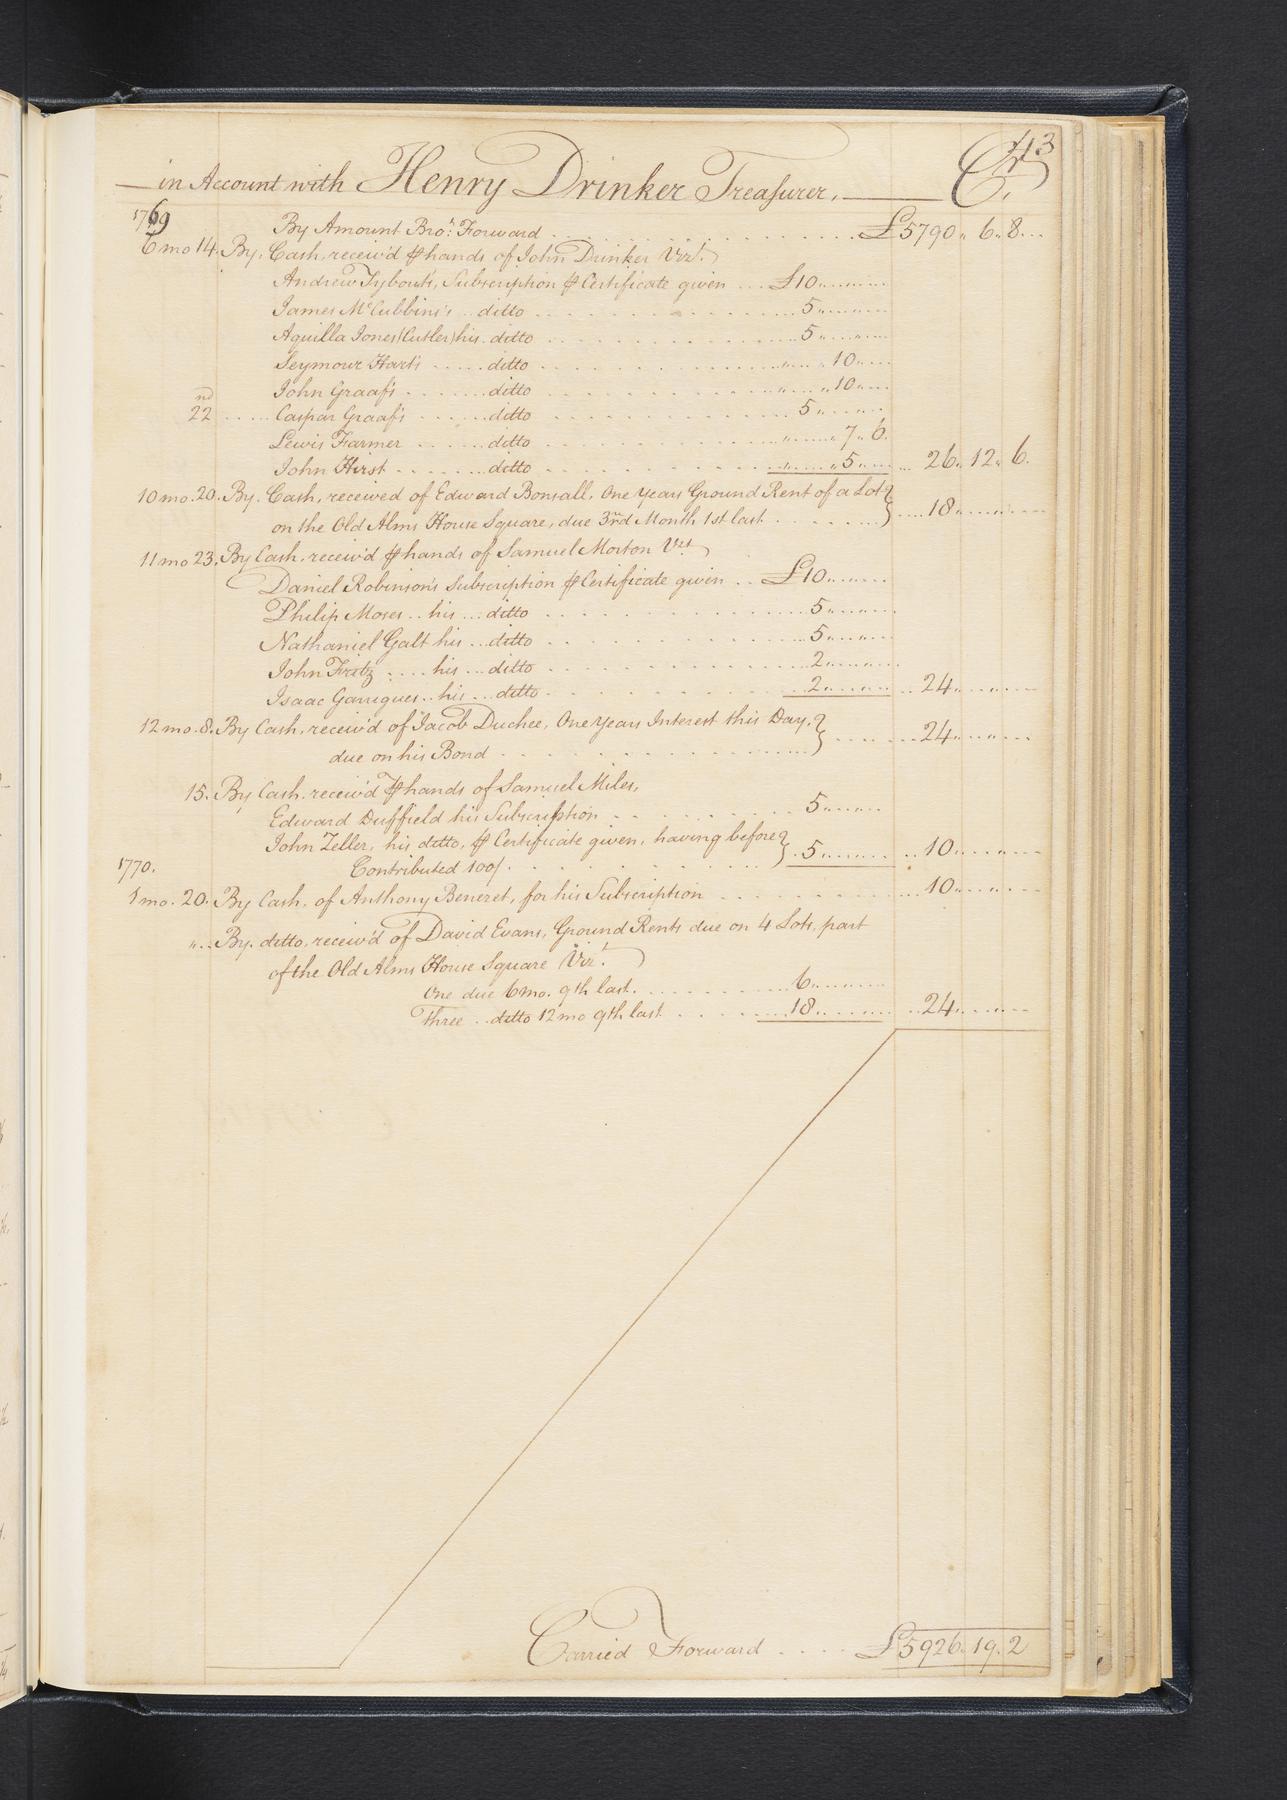 43
in Account with Henry Drinker Treasurer. Cr.
1769
By Amount Bro.t Forward £5790 „ 6 „ 8
6 mo 14. By Cash, receiv'd ⅌ hands of John Drinker Viz.t
Andrew Tybout's, Subscription ⅌ Certificate given £10
James McCubbin's ditto 5
Aquilla Jones (Cutler) his ditto 5
Seymour Hart's ditto 10
John Graaf's ditto 10
22nd Caspar Graaf's ditto 5
Lewis Farmer ditto 7 „ 6
John Hirst ditto 5 26 „ 12 „ 6
10 mo. 20. By Cash, received of Edward Bonsall, One Years Ground Rent of a Lot
on the Old Alms House Square, due 3rd Month 1st last 18
11 mo 23. By Cash, receiv'd ⅌ hands of Samuel Morton Vizt
Daniel Robinson's Subscription ⅌ Certificate given £10
Philip Moses his ditto 5
Nathaniel Galt his ditto 5
John Fritz his ditto 2
Isaac Garrigues his ditto 2 24
12 mo. 8. By Cash, receiv'd of Jacob Duchee, One Years Interest this Day,
due on his Bond 24
15. By Cash, receiv'd ⅌ hands of Samuel Miles,
Edward Duffield his Subscription 5
John Zeller, his ditto, ⅌ Certificate given, having before
Contributed 100/ 5 10
1770.
1 mo. 20. By Cash, of Anthony Benezet, for his Subscription 10
„ By ditto, receiv'd of David Evans, Ground Rents due on 4 Lots, part
of the Old Alms House Square Viz.t
One due 6 mo. 9th last. 6
Three ditto 12 mo 9th last 18 24
Carried Forward £5926. 19. 2